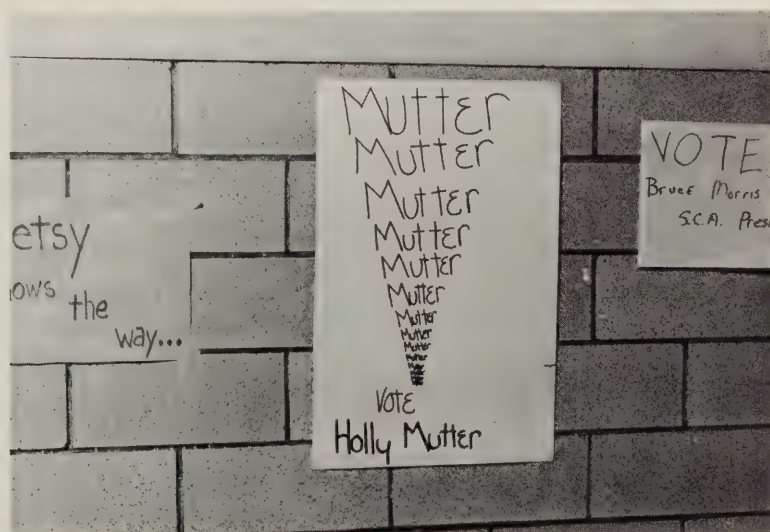 etsy
ows the
way...
Mutter
Mutter
Mutter
Mutter
Mutter
Mutter
Mutter
Mutter
Mutter
Mutter
Vote
Holly Mutter
VOTE
Bruce Morris
S.C.A. Pres